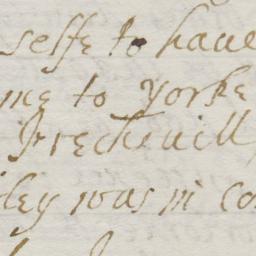 selfe to haue
me to Yorke
Frecheuill
ley was in co